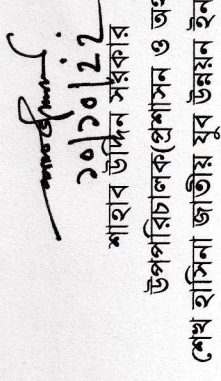 ১০/১০/২২
শাহাব উদ্দিন সরকার
উপপরিচালক(প্রশাসন ও
শেখ হাসিনা জাতীয় যুব উন্নয়ন